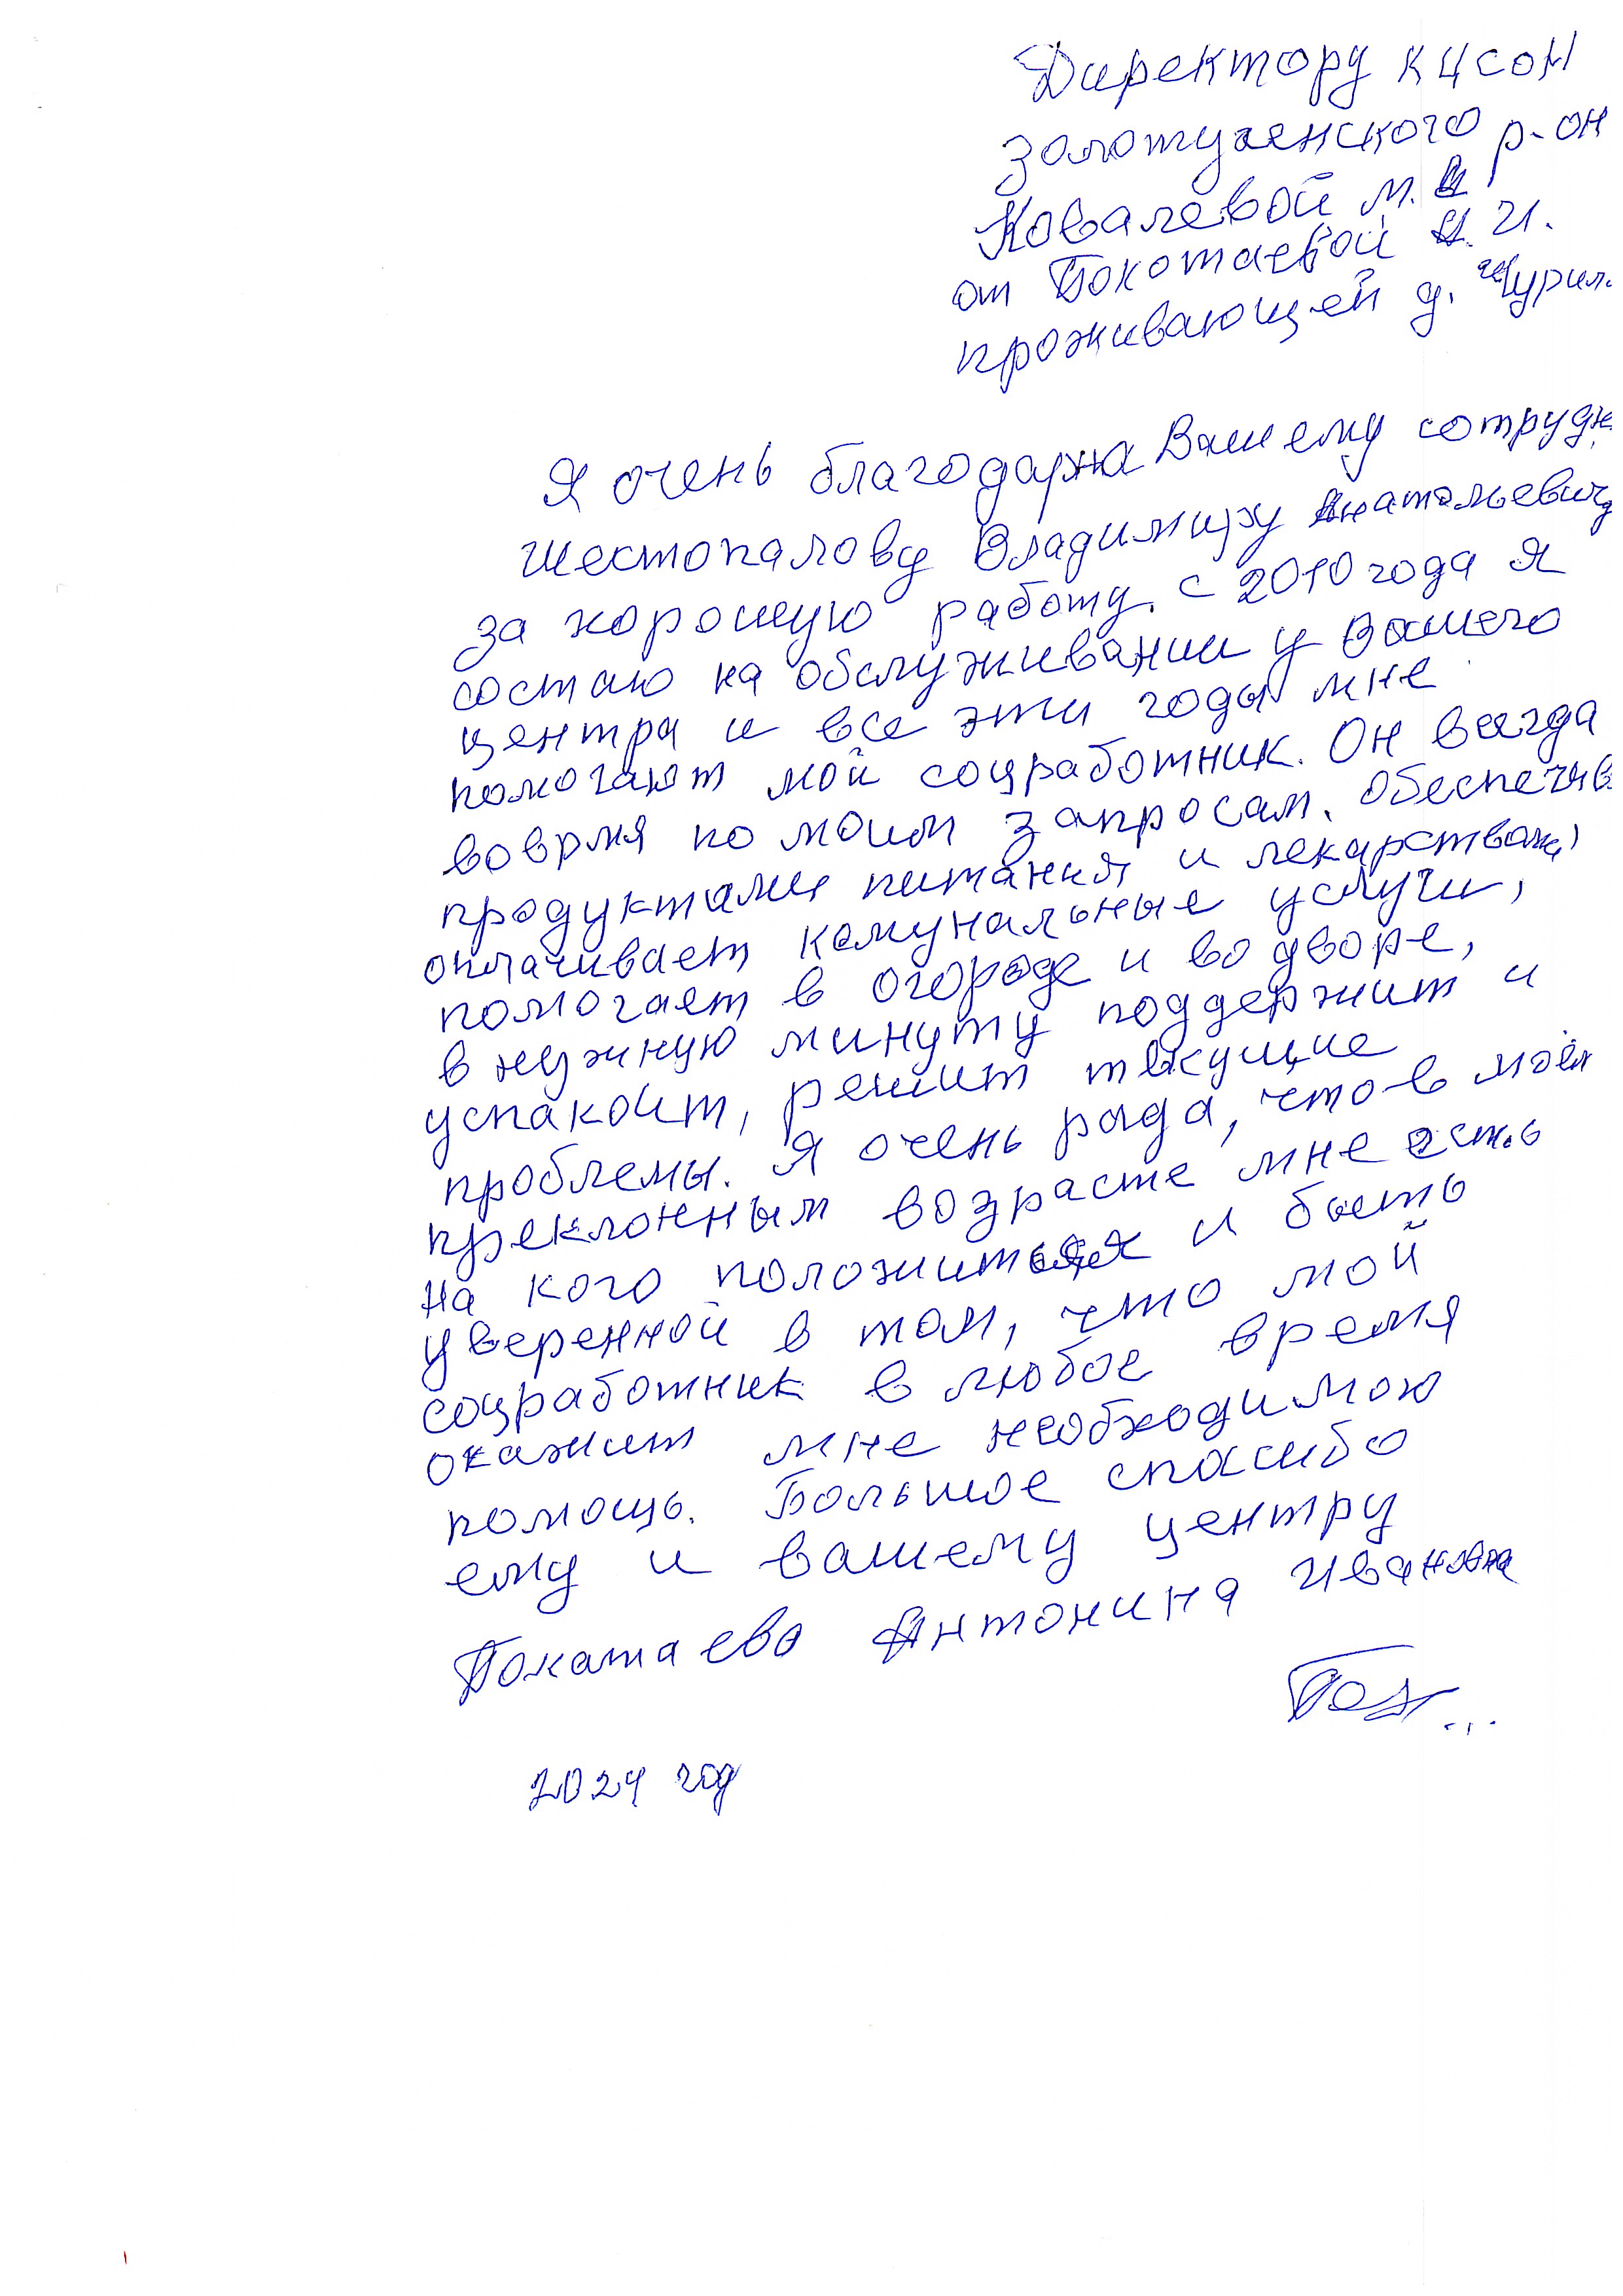 Директору КЦСОН
Золотухенского р-он
Ковалевой М.
от Покотаевой И.
проживающей д. Чурил
Я очень благодарна Вашему сотрудн
Шестопалову Владимиру Анатольевичу
за хорошую работу. с 2010 года я
состаю на обслуживании у Вашего
центра и все эти годы мне
помогают мой соцработник. Он всегда
воврмя по моим запросам. Обеспечив
продуктами питания и лекарствами,
оплачивает комунальные услуги,
помогает в огороде и во дворе,
в нужную минуту поддержит и
успакоит, решит текущие
проблемы. Я очень рада, что в моём
преклонным возрасте мне есть
на кого положиться и быть
уверенной в том, что мой
соцработник в любое время
окажит мне необходимою
помощь. Большое спасибо
ему и вашему центру
Покатаева Антонина Ивановна
2024 год